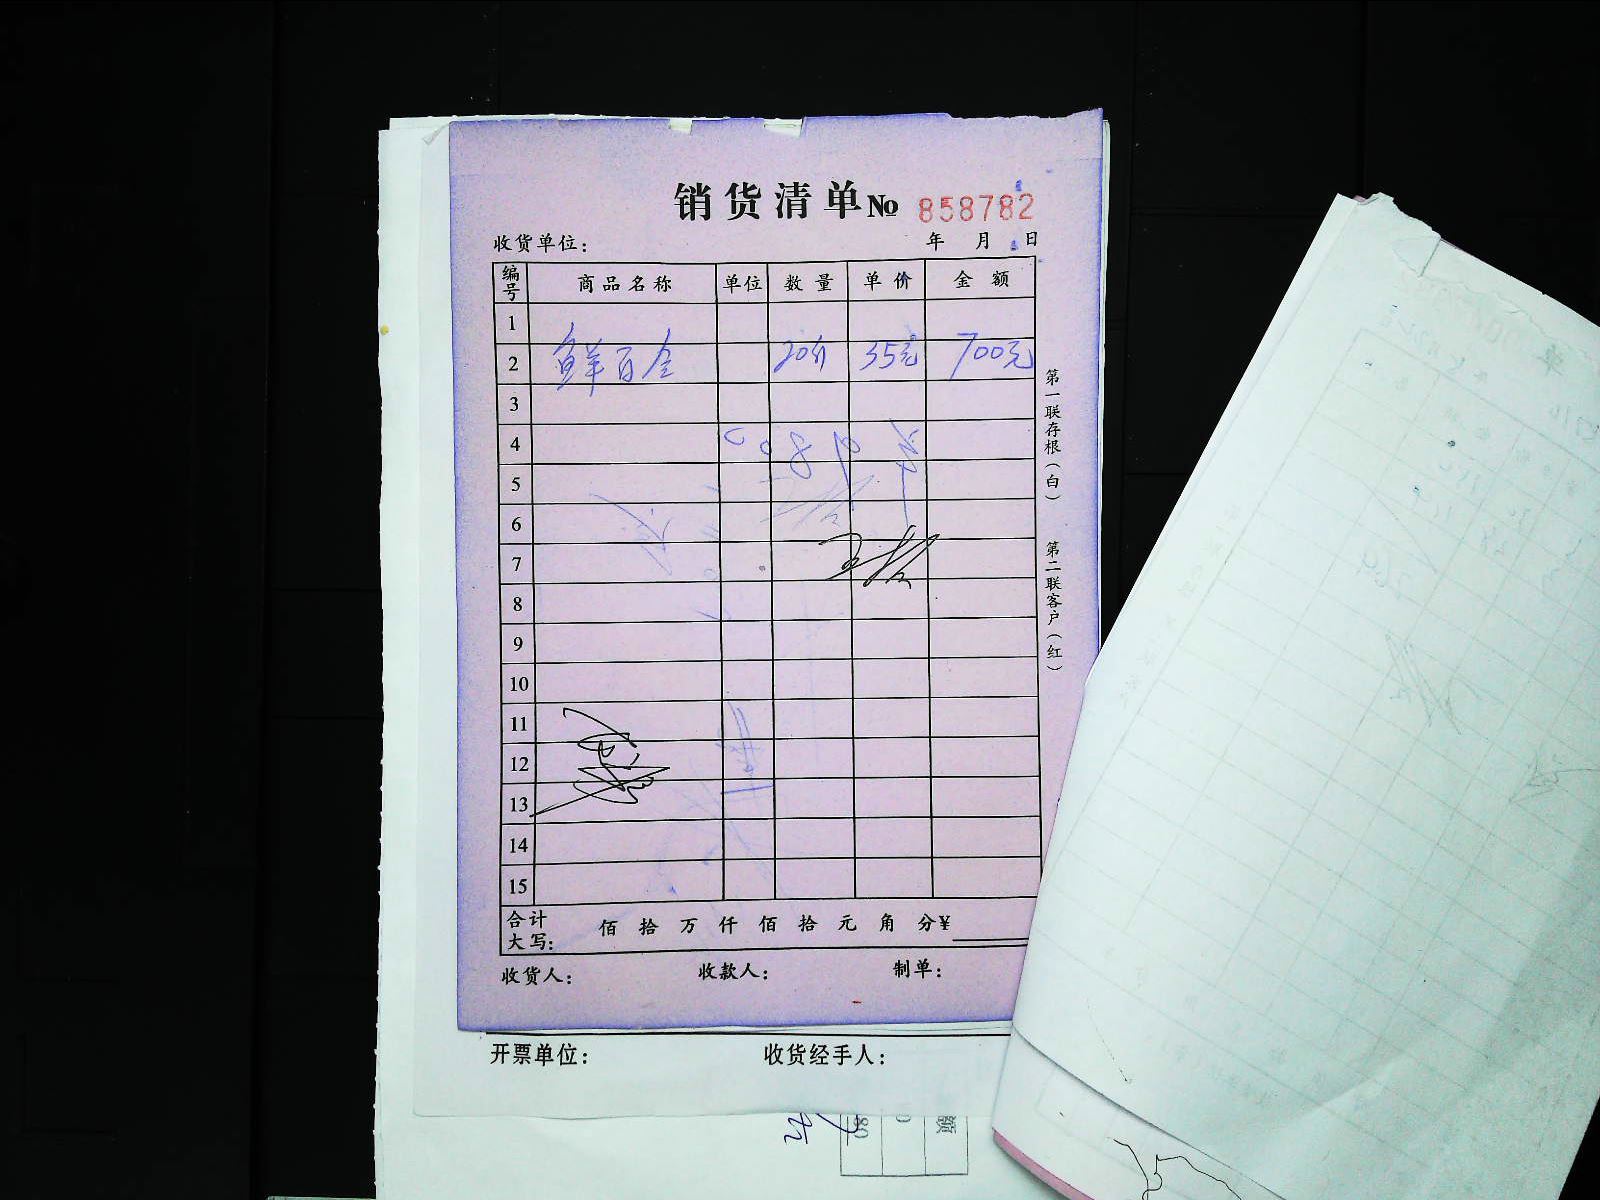 销货清单 № 858782
收货单位： 年 月 日
编号 商品名称 单位 数量 单价 金额
1
2 鲜百合 20斤 35元 700元
3
4
5
6
7
8
9
10
11
12
13
14
15
合计大写： 佰 拾 万 仟 佰 拾 元 角 分¥
收货人： 收款人： 制单：
第一联存根（白） 第二联客户（红）
开票单位： 收货经手人：